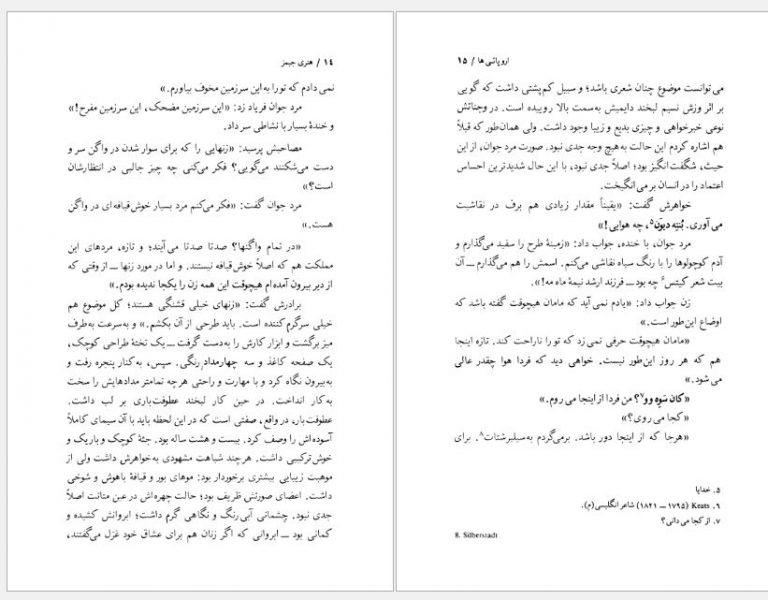 ۱۴ / هنری جیمز
نمی دادم که تو را به این سرزمین مخوف بیاورم.»
مرد جوان فریاد زد: «این سرزمین مضحک، این سرزمین مفرح!»
و خندهٔ بسیار با نشاطی سر داد.
مصاحبش پرسید: «زنهایی را که برای سوار شدن در واگن سر و
دست می‌شکنند می‌گویی؟ فکر می‌کنی چه چیز جالبی در انتظارشان
است؟»
مرد جوان گفت: «فکر می‌کنم مرد بسیار خوش‌قیافه ای در واگن
هست.»
«در تمام واگنها؟ صدتا صدتا می‌آیند؛ و تازه، مردهای این
مملکت هم که اصلاً خوش‌قیافه نیستند. و اما در مورد زنها ـــ از وقتی که
از دیر بیرون آمده‌ام هیچوقت این همه زن را یکجا ندیده بودم.»
برادرش گفت: «زنهای خیلی قشنگی هستند؛ کل موضوع هم
خیلی سرگرم کننده است. باید طرحی از آن بکشم.» و به‌سرعت به‌طرف
میز برگشت و ابزار کارش را به‌دست گرفت ـــ یک تختهٔ طراحی کوچک،
یک صفحه کاغذ و سه چهارمداد رنگی. سپس، به‌کنار پنجره رفت و
به‌بیرون نگاه کرد و با مهارت و راحتی هرچه تمامتر مدادهایش را سخت
به‌کار انداخت. در حین کار لبخند عطوفت‌باری بر لب داشت.
عطوفت‌بار، در واقع، صفتی است که در این لحظه باید با آن سیمای کاملاً
آسوده‌اش را وصف کرد. بیست و هشت ساله بود. جثهٔ کوچک و باریک و
خوش‌ترکیبی داشت. هرچند شباهت مشهودی به‌خواهرش داشت ولی از
موهبت زیبایی بیشتری برخوردار بود: موهای بور و قیافهٔ باهوش و شوخی
داشت. اعضای صورتش ظریف بود؛ حالت چهره‌اش در عین متانت اصلاً
جدی نبود. چشمانی آبی‌رنگ و نگاهی گرم داشت؛ ابروانش کشیده و
کمانی بود ـــ ابروانی که اگر زنان هم برای عشاق خود غزل می‌گفتند،
اروپائی ها / ۱۵
می توانست موضوع چنان شعری باشد؛ و سبیل کم‌پشتی داشت که گویی
بر اثر وزش نسیم لبخند دایمیش به‌سمت بالا روییده است. در وجناتش
نوعی خیرخواهی و چیزی بدیع و زیبا وجود داشت. ولی همان‌طور که قبلاً
هم اشاره کردم این حالت به‌هیچ وجه جدی نبود. صورت مرد جوان، از این
حیث، شگفت‌انگیز بود؛ اصلاً جدی نبود، با این حال شدیدترین احساس
اعتماد را در انسان برمی‌انگیخت.
خواهرش گفت: «یقیناً مقدار زیادی هم برف در نقاشیت
می آوری. بُنتِه دیون⁵، چه هوایی!»
مرد جوان، با خنده، جواب داد: «زمینهٔ طرح را سفید می‌گذارم و
آدم کوچولوها را با رنگ سیاه نقاشی می‌کنم. اسمش را هم می‌گذارم ـــ آن
بیت شعر کیتس⁶ چه بود ـــ فرزند ارشد نیمهٔ ماه مه!».
زن جواب داد: «یادم نمی آید که مامان هیچوقت گفته باشد که
اوضاع این‌طور است.»
«مامان هیچوقت حرفی نمی زد که تو را ناراحت کند. تازه اینجا
هم که هر روز این‌طور نیست. خواهی دید که فردا هوا چقدر عالی
می شود.»
«کان سَوِه وو⁷؟ من فردا از اینجا می روم.»
«کجا می روی؟»
«هرجا که از اینجا دور باشد. برمی‌گردم به‌سیلبرشتات⁸. برای
۵. خدایا
۶. Keats (۱۷۹۵ ـــ ۱۸۲۱) شاعر انگلیسی(م).
۷. از کجا می دانی؟
8. Silberstadt